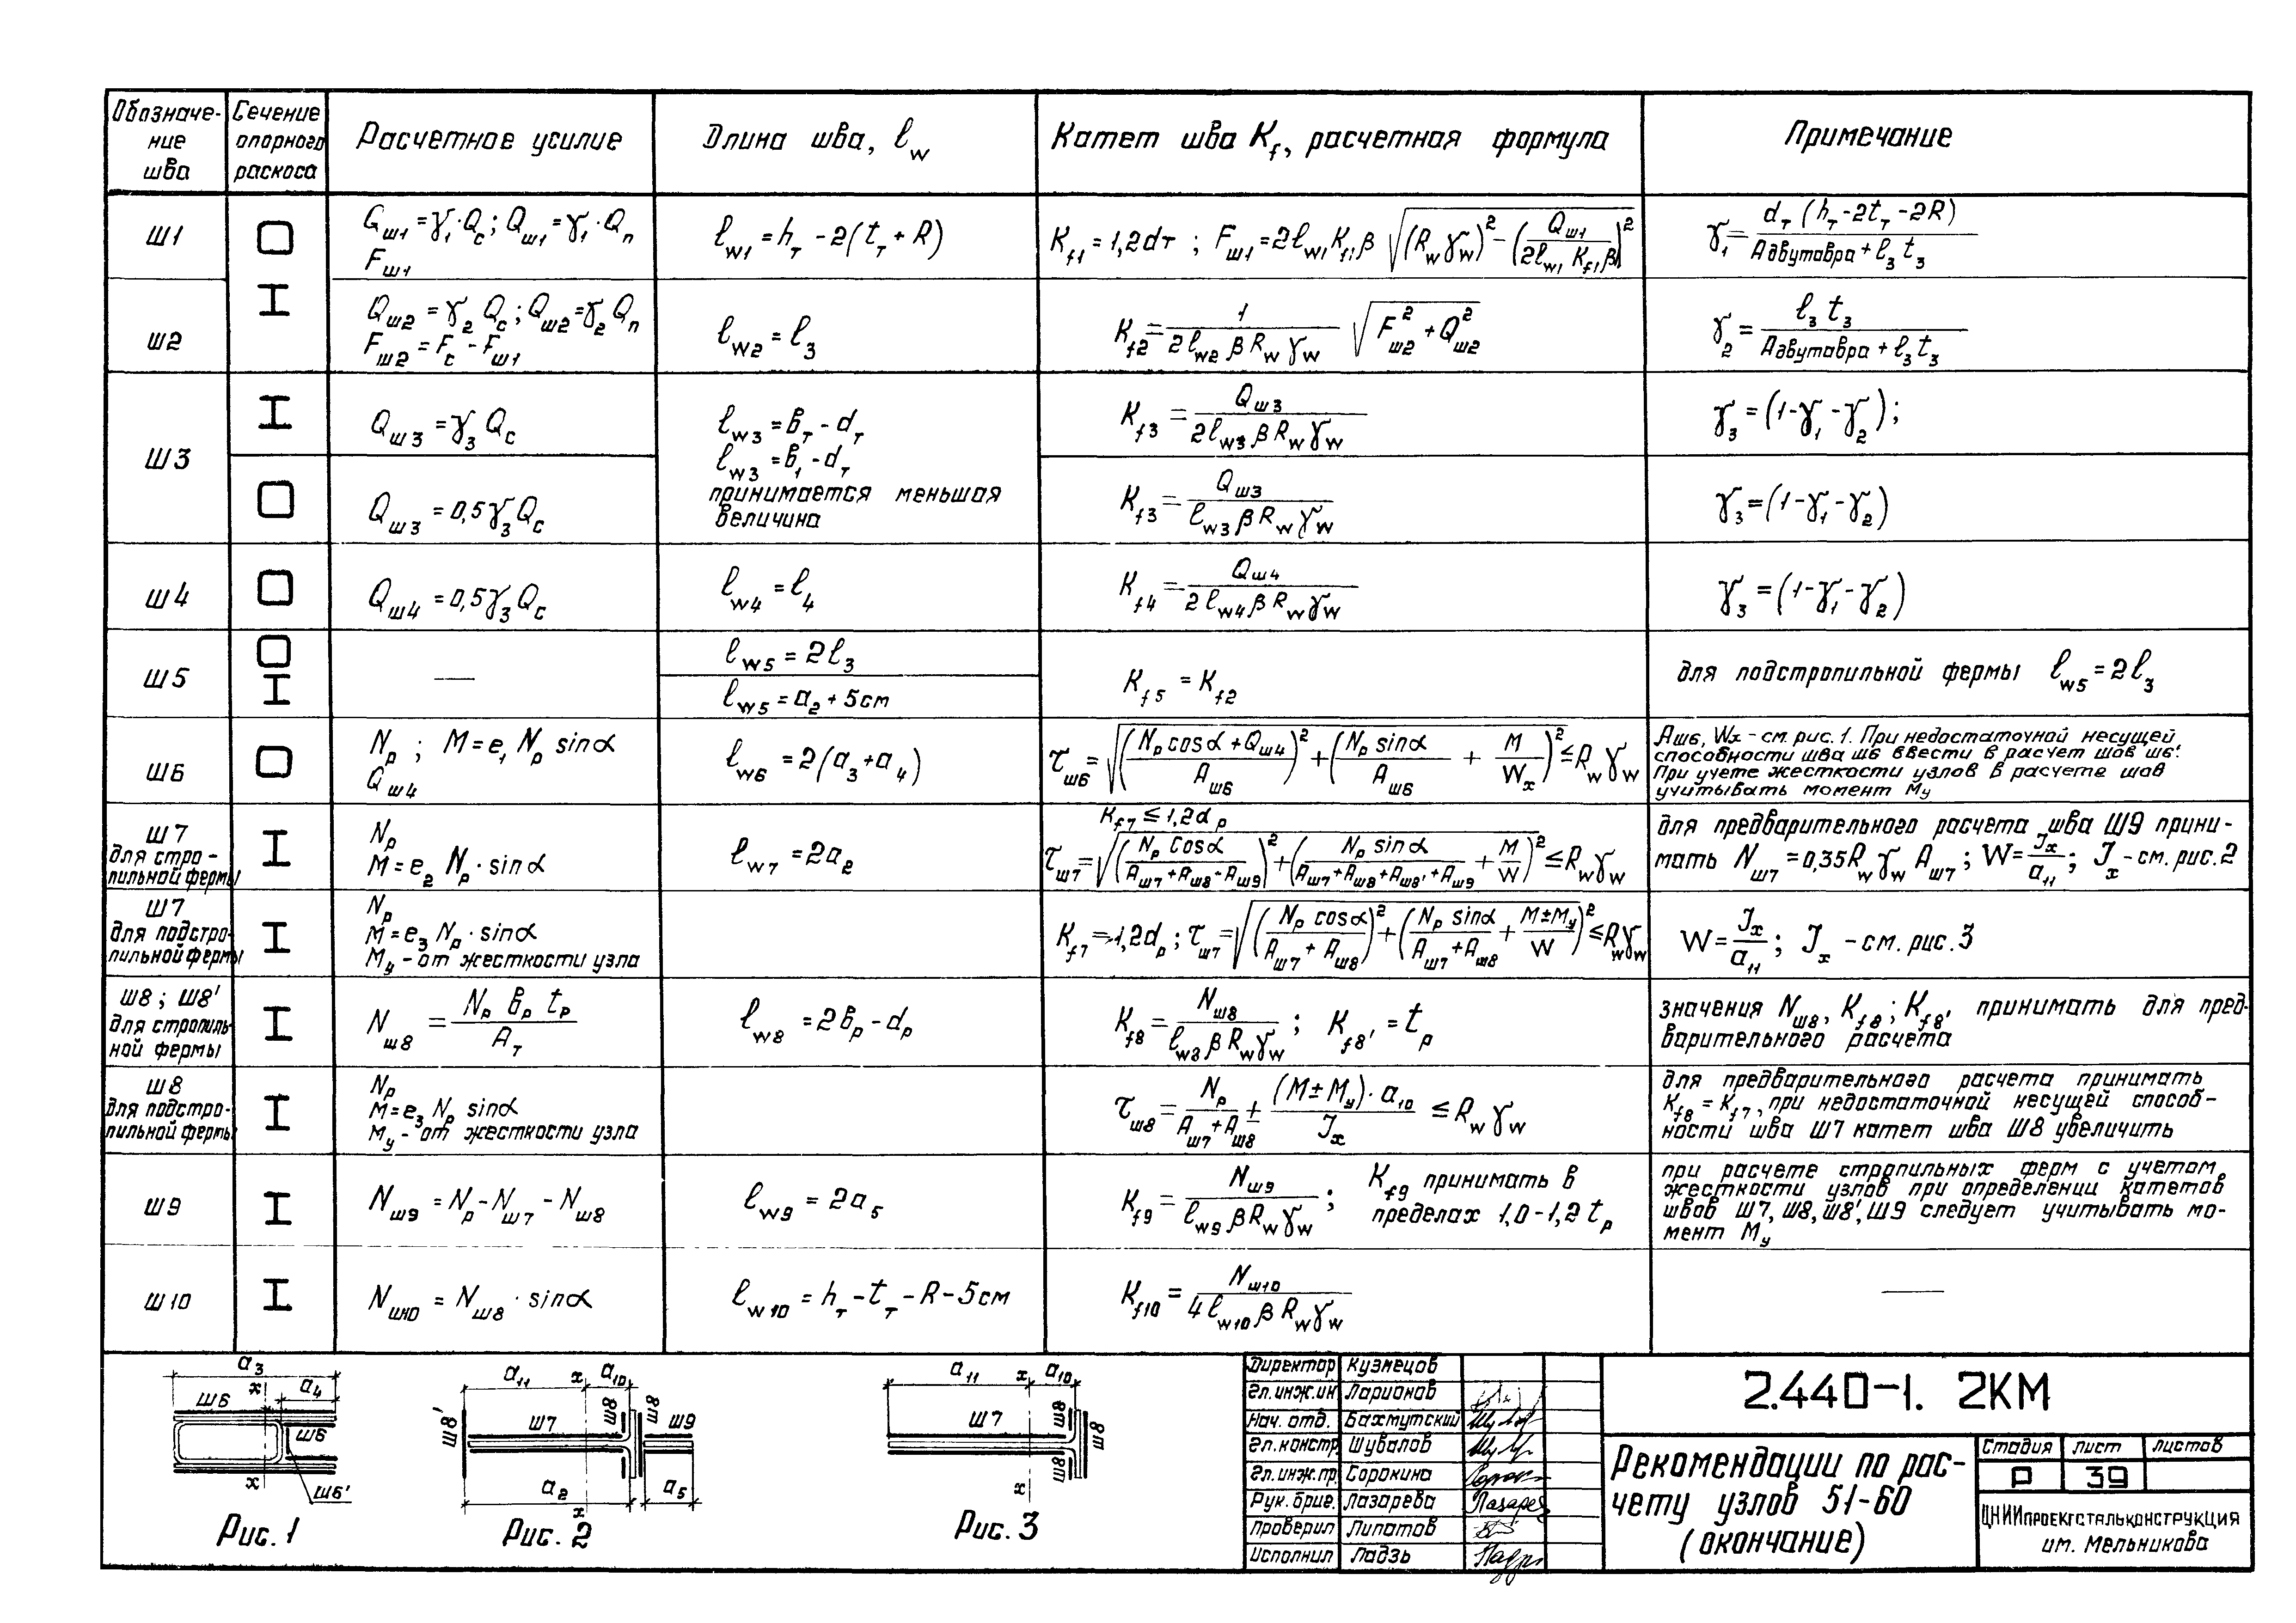 Обозначе-
ние
шва
Сечение
опорного
раскоса
Расчетное усилие
Длина шва, ℓw
Катет шва Kf, расчетная формула
Примечание
Ш1
Gш1 = γ1·Qc; Qш1 = γ1·Qп
Fш1
ℓw1 = hт - 2(tт + R)
Kf1 = 1,2dт ; Fш1 = 2ℓw1 Kf1 β √((Rw γw)² - (Qш1 / 2ℓw1 Kf1 β)²)
γ1 = dт (hт - 2tт - 2R) / Aдвутавра + ℓ3 t3
Ш2
Qш2 = γ2 Qc; Qш2 = γ2 Qп
Fш2 = Fc - Fш1
ℓw2 = ℓ3
Kf2 = 1 / 2ℓw2 β Rw γw √(F²ш2 + Q²ш2)
γ2 = ℓ3 t3 / Aдвутавра + ℓ3 t3
Ш3
Qш3 = γ3 Qc
ℓw3 = вт - dт
ℓw3 = в1 - dт
принимается меньшая
величина
Kf3 = Qш3 / 2ℓw3 β Rw γw
γ3 = (1 - γ1 - γ2);
Qш3 = 0,5γ3 Qc
Kf3 = Qш3 / ℓw3 β Rw γw
γ3 = (1 - γ1 - γ2)
Ш4
Qш4 = 0,5γ3 Qc
ℓw4 = ℓ4
Kf4 = Qш4 / 2ℓw4 β Rw γw
γ3 = (1 - γ1 - γ2)
Ш5
—
ℓw5 = 2ℓ3
ℓw5 = a2 + 5см
Kf5 = Kf2
для подстропильной фермы ℓw5 = 2ℓ3
Ш6
Nр ; M = e1 Nр sinα
Qш4
ℓw6 = 2(a3 + a4)
τш6 = √((Nр cosα + Qш4 / Aш6)² + (Nр sinα / Aш6 + M / Wx)²) ≤ Rw γw
Aш6, Wx - см. рис. 1. При недостаточной несущей
способности шва ш6 ввести в расчет шов ш6'.
При учете жесткости узлов в расчете шов
учитывать момент Mу
Ш7
для стро-
пильной фермы
Nр
M = e2 Nр · sinα
ℓw7 = 2a2
Kf7 ≤ 1,2dр
τш7 = √((Nр cosα / Aш7 + Aш8 + Aш9)² + (Nр sinα / Aш7 + Aш8 + Aш8' + Aш9 + M / W)²) ≤ Rw γw
для предварительного расчета шва Ш9 прини-
мать Nш7 = 0,35Rw γw Aш7 ; W = Jx / a11 ; Jx - см. рис. 2
Ш7
для подстро-
пильной фермы
Nр
M = e3 Nр · sinα
Mу - от жесткости узла
Kf7 = 1,2dр ; τш7 = √((Nр cosα / Aш7 + Aш8)² + (Nр sinα / Aш7 + Aш8 + M ± Mу / W)²) ≤ Rw γw
W = Jx / a11 ; Jx - см. рис. 3
Ш8 ; Ш8'
для стропиль-
ной фермы
Nш8 = Nр вр tр / Aт
ℓw8 = 2вр - dр
Kf8 = Nш8 / ℓw8 β Rw γw ; Kf8' = tр
значения Nш8, Kf8 ; Kf8' принимать для пред-
варительного расчета
Ш8
для подстро-
пильной фермы
Nр
M = e3 Nр sinα
Mу - от жесткости узла
τш8 = Nр / Aш7 + Aш8 ± (M ± Mу) · a10 / Jx ≤ Rw γw
для предварительного расчета принимать
Kf8 = Kf7, при недостаточной несущей способ-
ности шва Ш7 катет шва Ш8 увеличить
Ш9
Nш9 = Nр - Nш7 - Nш8
ℓw9 = 2a5
Kf9 = Nш9 / ℓw9 β Rw γw ; Kf9 принимать в
пределах 1,0 - 1,2 tр
при расчете стропильных ферм с учетом
жесткости узлов при определении катетов
швов Ш7, Ш8, Ш8', Ш9 следует учитывать мо-
мент Mу
Ш10
Nш10 = Nш8 · sinα
ℓw10 = hт - tт - R - 5см
Kf10 = Nш10 / 4ℓw10 β Rw γw
—
a3
x
a4
ш6
ш6
x
ш6'
Рис. 1
a11
x
a10
ш8'
ш7
ш8
ш8
ш9
a2
a5
x
Рис. 2
a11
x
a10
ш7
ш8
ш8
ш8
x
Рис. 3
Директор Кузнецов
Гл. инж. ин. Ларионов
Нач. отд. Бахмутский
Гл. констр. Шувалов
Гл. инж. пр. Сорокина
Рук. бриг. Лазарева
Проверил Липатов
Исполнил Ладзь
2.440-1. 2КМ
Рекомендации по рас-
чету узлов 51-60
(окончание)
Стадия лист листов
Р 39
ЦНИИпроектстальконструкция
им. Мельникова